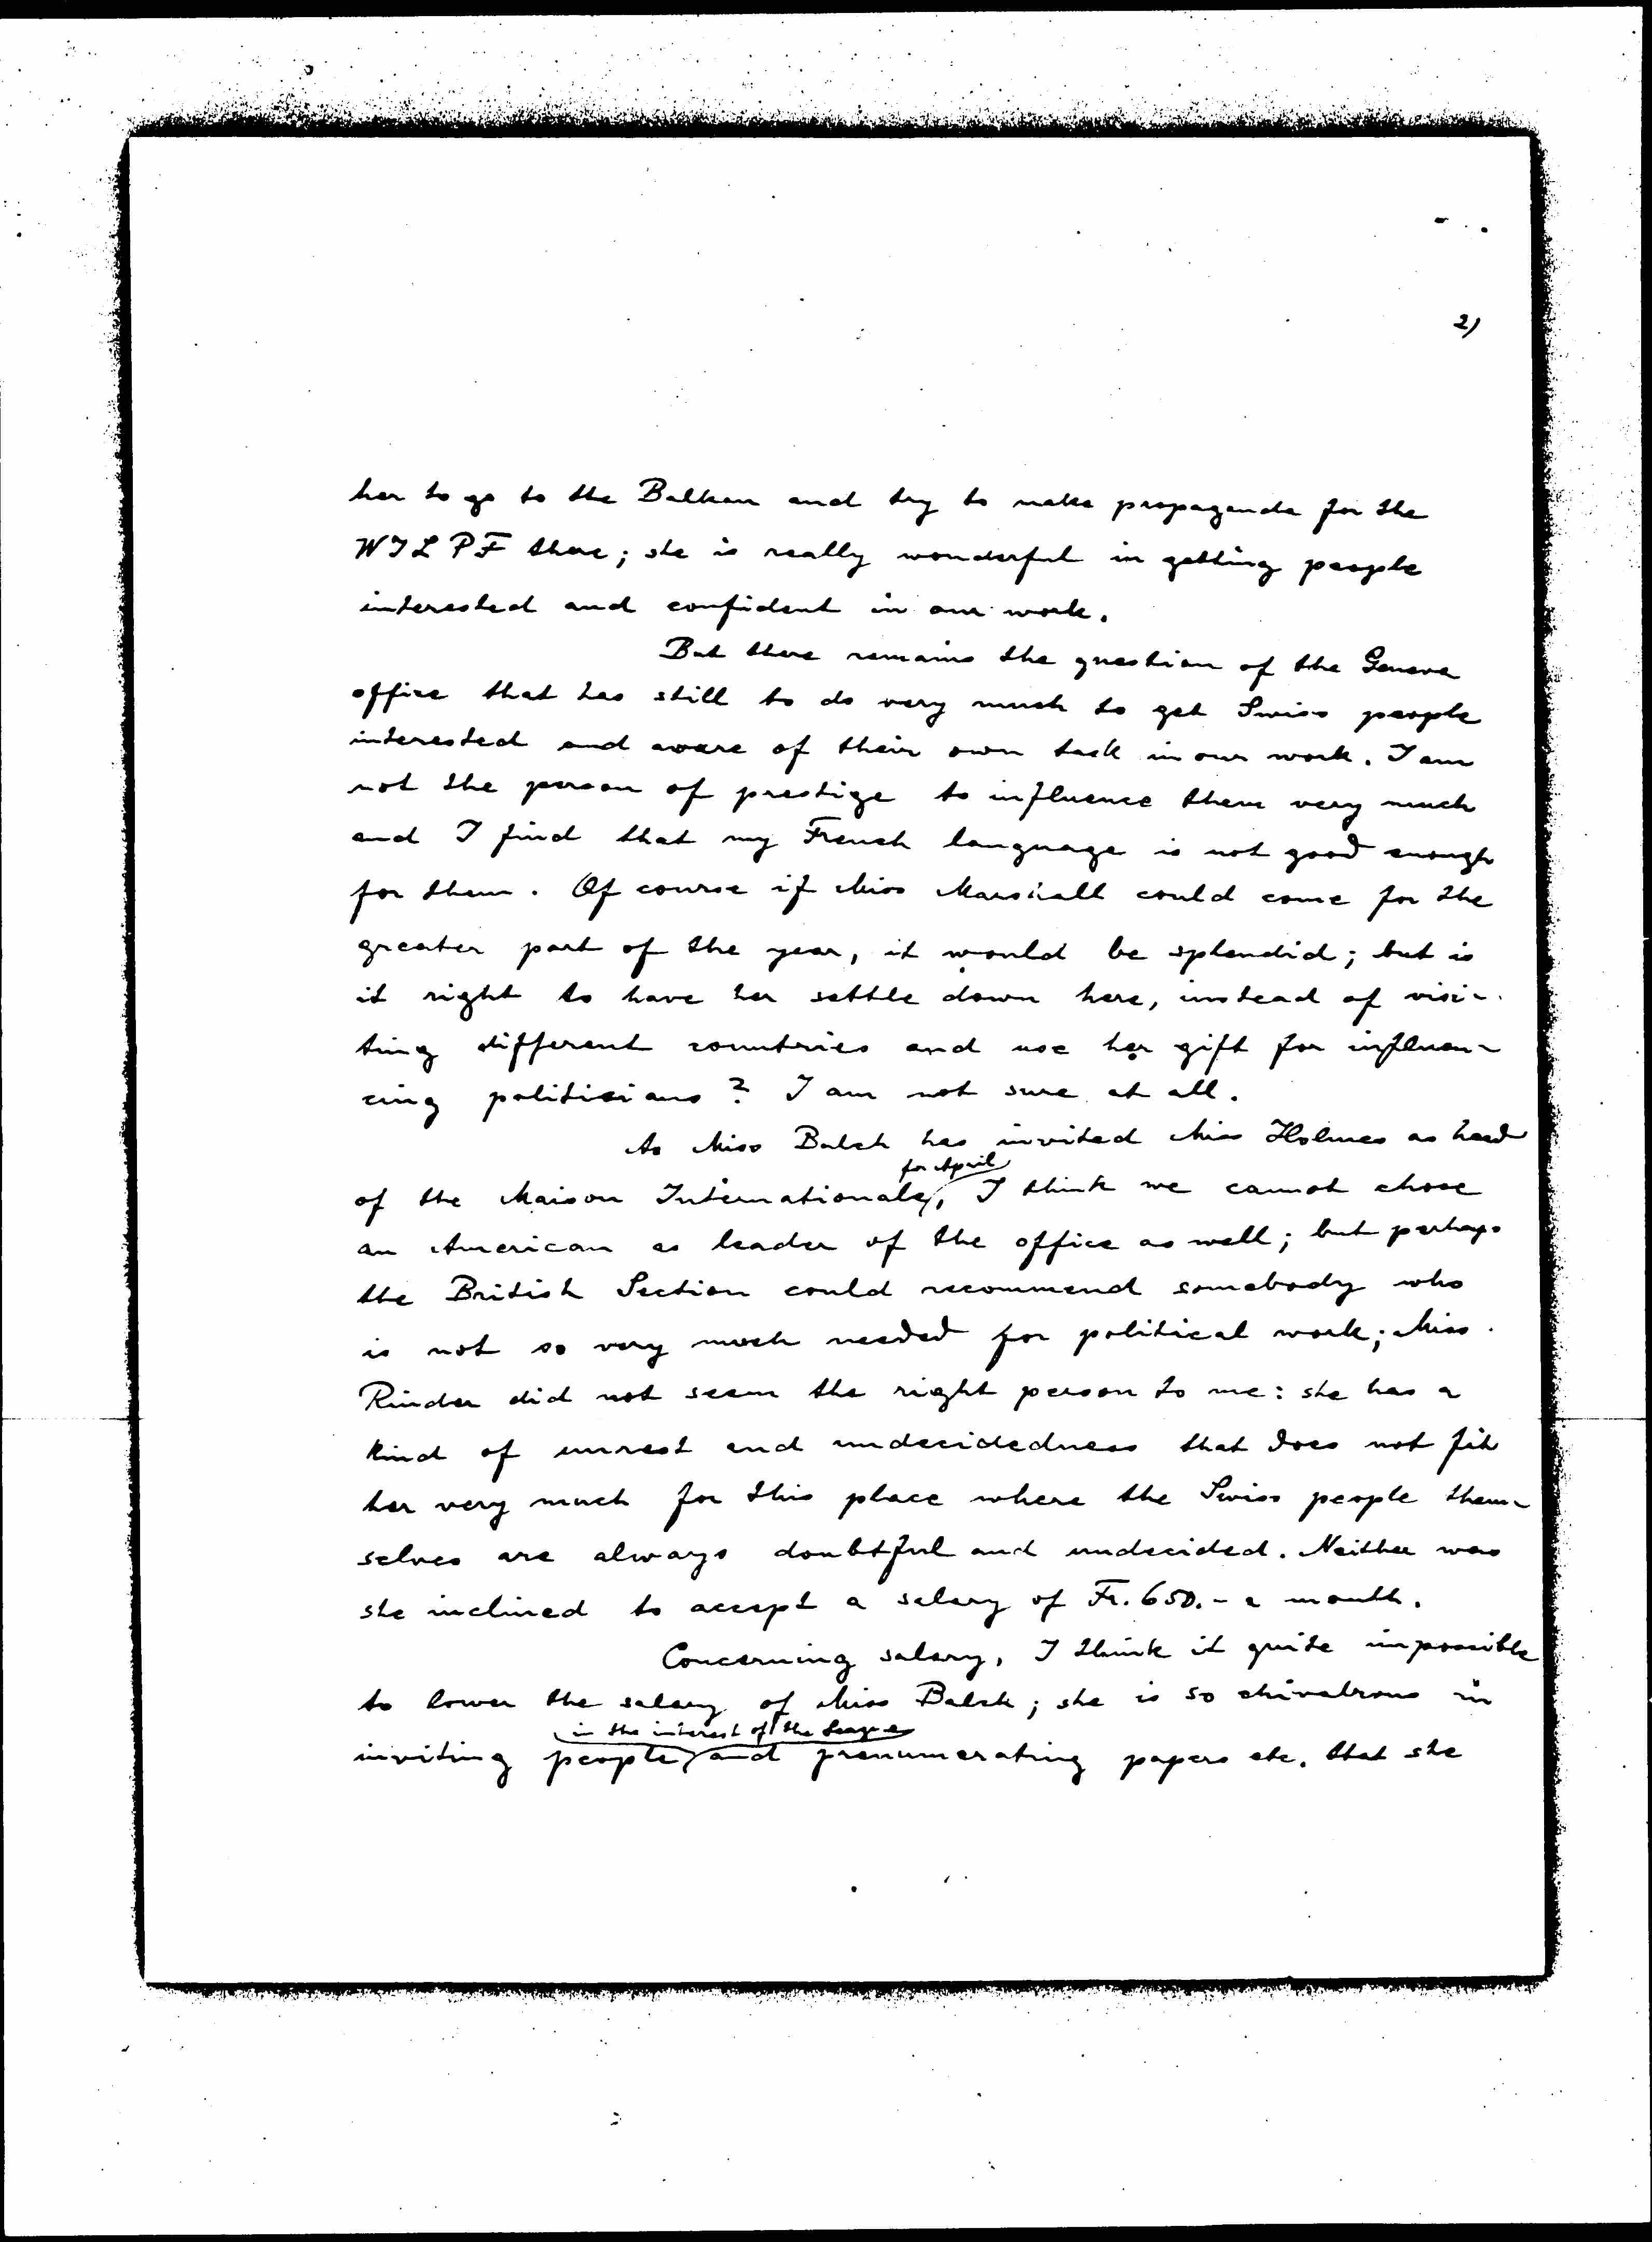 2)
her to go to the Balkan and try to make propaganda for the
WILPF there; she is really wonderful in getting people
interested and confident in our work.
But there remains the question of the Geneva
office that has still to do very much to get Swiss people
interested and aware of their own task in our work. I am
not the person of prestige to influence them very much
and I find that my French language is not good enough
for them. Of course if Miss Marshall could come for the
greater part of the year, it would be splendid; but is
it right to have her settle down here, instead of visi-
ting different countries and use her gift for influen-
cing politicians? I am not sure at all.
As Miss Balch has invited Miss Holmes as head
for April
of the Maison Internationale, I think we cannot chose
an American as leader of the office as well; but perhaps
the British Section could recommend somebody who
is not so very much needed for political work; Miss
Rinder did not seem the right person to me: she has a
kind of unrest and undecidedness that does not fit
her very much for this place where the Swiss people them-
selves are always doubtful and undecided. Neither was
she inclined to accept a salary of Fr. 650.- a month.
Concerning salary, I think it quite impossible
to lower the salary of Miss Balch; she is so chivalrous in
in the interest of the League
inviting people and prenumerating papers etc. that she